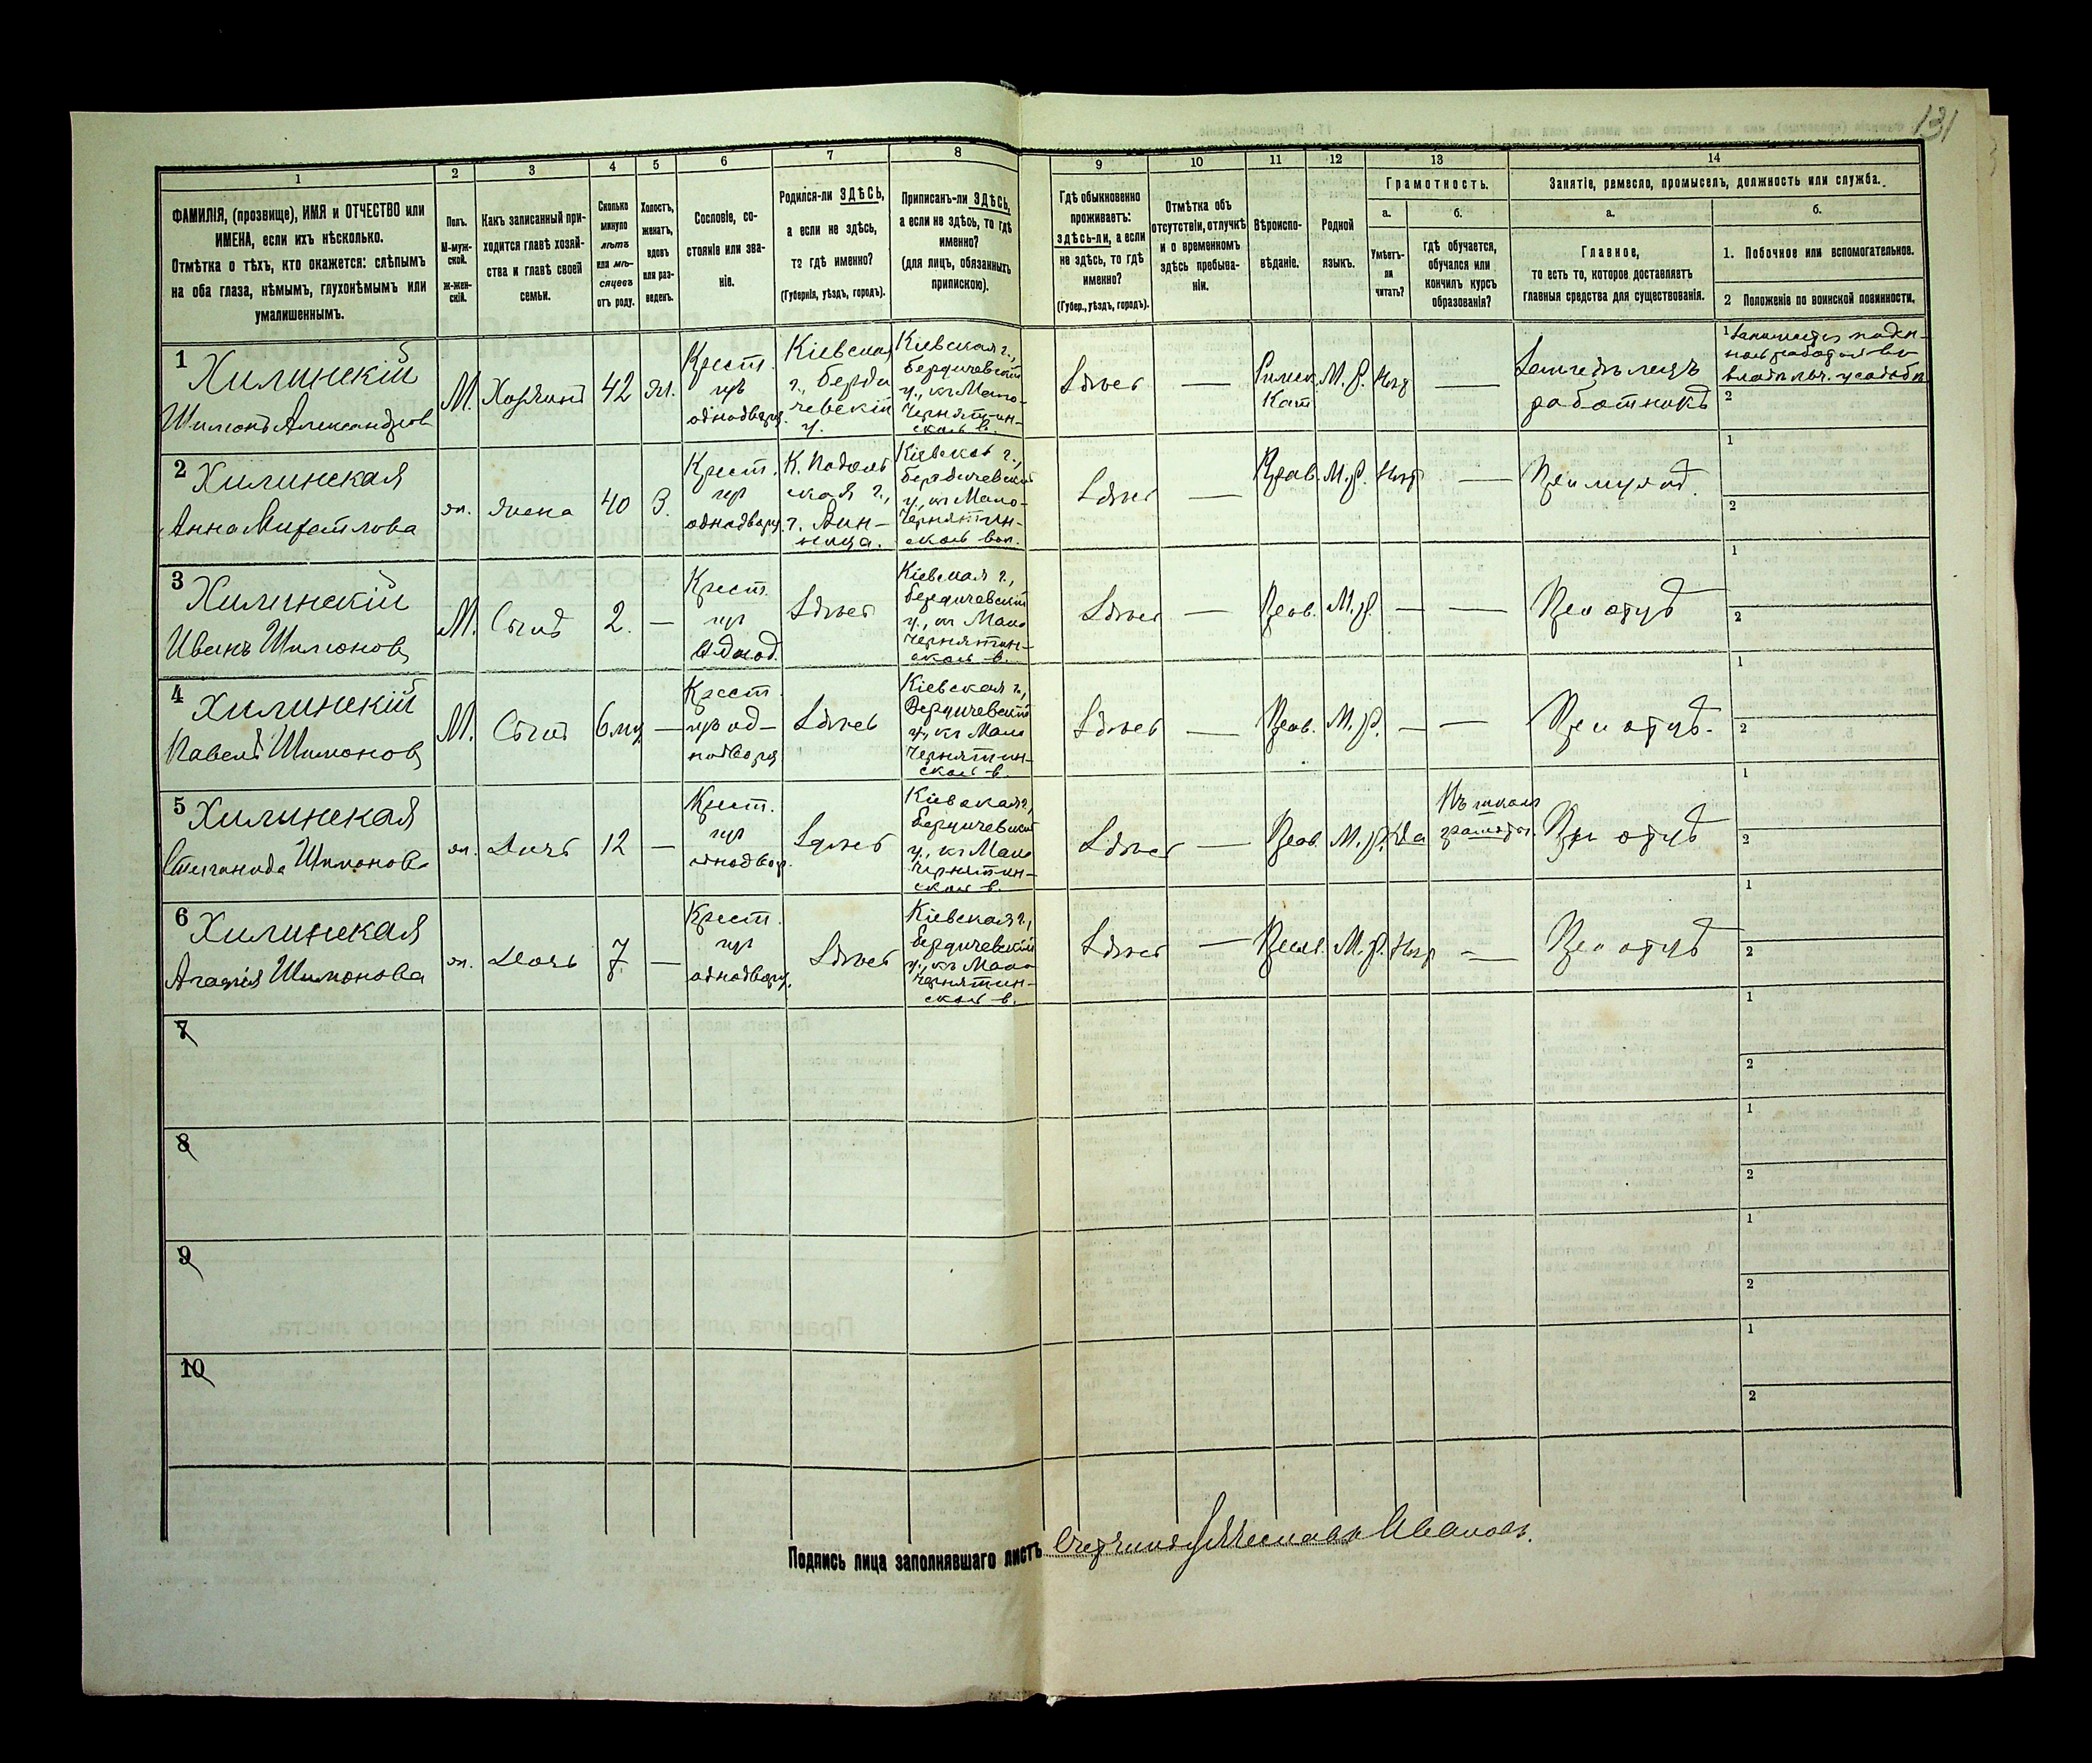 131
1
2
3
4
5
6
7
8
9
10
11
12
13
14
ФАМИЛІЯ, (прозвище), ИМЯ и ОТЧЕСТВО или
ИМЕНА, если ихъ нѣсколько.
Отмѣтка о тѣхъ, кто окажется: слѣпымъ
на оба глаза, нѣмымъ, глухонѣмымъ или
умалишеннымъ.
Полъ.
М-муж-
ской.
Ж-жен-
скій.
Какъ записанный при-
ходится главѣ хозяй-
ства и главѣ своей
семьи.
Сколько
минуло
лѣтъ
или мѣ-
сяцевъ
отъ роду.
Холостъ,
женатъ,
вдовъ
или раз-
веденъ.
Сословіе, со-
стояніе или зва-
ніе.
Родился-ли ЗДѢСЬ,
а если не здѣсь,
то гдѣ именно?
(Губернія, уѣздъ, городъ).
Приписанъ-ли ЗДѢСЬ,
а если не здѣсь, то гдѣ
именно?
(для лицъ, обязанныхъ
припискою).
Гдѣ обыкновенно
проживаетъ:
здѣсь-ли, а если
не здѣсь, то гдѣ
именно?
(Губер., уѣздъ, городъ).
Отмѣтка объ
отсутствіи, отлучкѣ
и о временномъ
здѣсь пребыва-
ніи.
Вѣроиспо-
вѣданіе.
Родной
языкъ.
Грамотность.
а.
Умѣетъ-
ли
читать?
б.
гдѣ обучается,
обучался или
кончилъ курсъ
образованія?
Занятіе, ремесло, промыселъ, должность или служба.
а.
Главное,
то есть то, которое доставляетъ
главныя средства для существованія.
б.
1. Побочное или вспомогательное.
2 Положеніе по воинской повинности.
1
Хилинскій
Шимонъ Александров
М.
Хозяинъ
42
Ж.
Крест.
изъ
однодворц.
Кіевская
г., Берди
чевскій
у.
Кіевская г.,
Бердичевскій
у., къ Мало-
Чернятин-
ской в.
Здѣсь
—
Римск.
Кат
М. Р.
Нѣт
—
Земледѣлецъ
работникъ
1
2
2
Хилинская
Анна Михайлова
ж.
жена
40
З.
Крест.
изъ
однодворц.
К. Подоль
ская г.,
г. Вин-
ница.
Кіевской г.,
Бердичевскій
у., къ Мало-
Чернятин-
ской вол.
Здѣсь
—
Прав.
М. Р.
Нѣт
—
1
2
3
Хилинскій
Иванъ Шимоновъ
М.
Сынъ
2.
—
Крест.
изъ
однод.
Здѣсь
Кіевская г.,
Бердичевскій
у., къ Мало
Чернятин-
ской в.
Здѣсь
—
Прав.
М. Р.
—
—
При отцѣ
1
2
4
Хилинскій
Павелъ Шимоновъ
М.
Сынъ
6 мц
—
Крест.
изъ од-
нодворц
Здѣсь
Кіевская г.,
Бердичевскій
у., къ Мало
Чернятин-
ской в.
Здѣсь
—
Прав.
М. Р.
—
—
При отцѣ.
1
2
5
Хилинская
Степанида Шимонова
ж.
Дочь
12
—
Крест.
изъ
однодвор.
Здѣсь
Кіевская г.,
Бердичевскій
у., къ Мало
Чернятин-
ской в.
Здѣсь
—
Прав.
М. Р.
Да
Въ школѣ
грамоты.
При отцѣ
1
2
6
Хилинская
Агафія Шимонова
ж.
Дочь
7
—
Крест.
изъ
однодворц.
Здѣсь
Кіевская г.,
Бердичевскій
у., къ Мало-
Чернятин-
ской в.
Здѣсь
—
М. Р.
Нѣт
—
При отцѣ
1
2
7
1
2
8
1
2
9
1
2
10
1
2
Подпись лица заполнявшаго листъ Ивановъ.